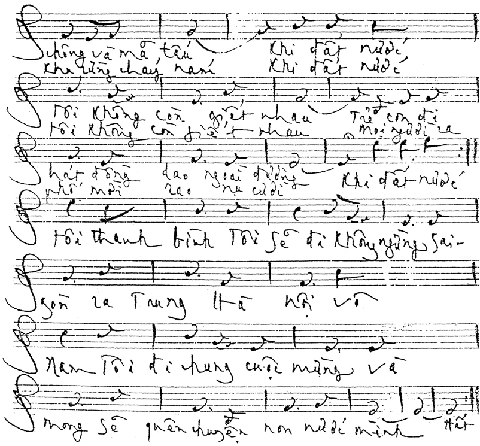 chông và mã tấu Khi đất nước
Khu rừng cháy nám Khi đất nước
tôi không còn giết nhau Trẻ con đi
tôi không còn giết nhau mọi người ra
hát đồng dao ngoài đường Khi đất nước
phố mời rao nụ cười
tôi thanh bình Tôi sẽ đi không ngừng Sài-
gòn ra Trung Hà nội vô
Nam Tôi đi chung cuộc mừng và
mong sẽ quên chuyện non nước mình Hết